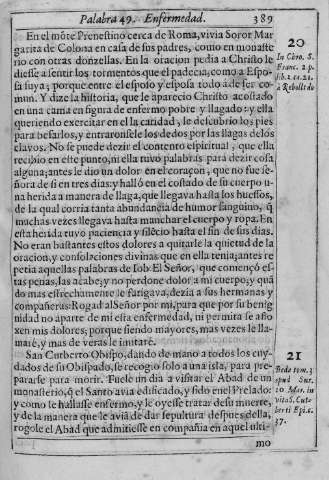 Palabra 49. Enfermedad. 389
En el mõte Prenestino cerca de Roma, vivia Soror Mar
garita de Colona en casa de sus padres, como en monaste
rio con otras donzellas. En la oracion pedia a Christo le
diesse a sentir los tormentos que el padecia, como a Espo-
sa suya; porque entre el esposo y esposa todo a de ser co
mun. Y dize la historia, que le aparecio Christo acostado
en vna cama en figura de enfermo pobre y llagado: y ella
queriendo exercitar en el la caridad, le descubrio los pies
para besarlos, y entraronsele los dedos por las llagas de los
clavos. No se puede dezir el contento espiritual, que ella
recibio en este punto, ni ella tuvo palabras para dezir cosa
alguna; antes le dio vn dolor en el coraçon, que no fue se-
ñora de si en tres dias: y hallò en el costado de su cuerpo v-
na herida a manera de llaga, que llegava hasta los huessos,
de la qual corria tanta abundancia de humor sanguino, q̃
muchas vezes llegava hasta manchar el cuerpo y ropa. En
esta herida tuvo paciencia y silẽcio hasta el fin de sus dias.
No eran bastantes estos dolores a quitarle la quietud de la
oracion, y consolaciones divinas que en ella tenia; antes re
petia aquellas palabras de Iob: El Señor, que començò es-
tas penas, las acabe; y no perdone dolor a mi cuerpo; y quã
do mas estrechamente le fatigava, dezia a sus hermanas y
compañeras: Rogad al Señor por mi, para que por su benig
nidad no aparte de mi esta enfermedad, ni permita se aflo
xen mis dolores; porque siendo mayores, mas vezes le lla-
marè, y mas de veras le imitarè.
San Cutberto Obispo, dando de mano a todos los cuy-
dados de su Obispado, se recogio solo a vna isla, para pre-
pararse para morir. Fuele vn dia a visitar el Abad de vn
monasterio, q̃ el Santo avia edificado, y sido en el Prelado:
y como le hallasse enfermo, y le oyesse tratar de su muerte,
y de la manera que le aviã de dar sepultura despues della,
rogole el Abad que admitiesse en compañia en aquel ulti-
mo
20
In Chro. S.
Franc. 2. p.
lib. 2. cc. 21.
á Rebolledo
21
Beda tom. 3
apud Sur.
20. Mar. in
vita S. Cut-
berti Epi. c.
37.